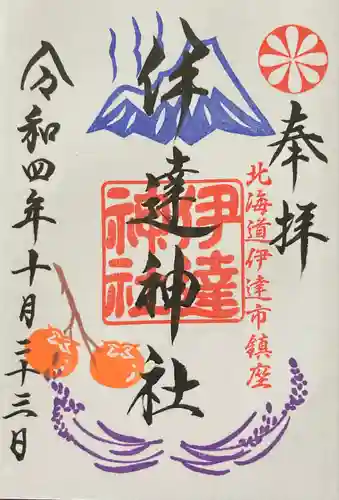 奉拝
北海道伊達市鎮座
伊達神社
伊達神社
令和四年十月二十三日